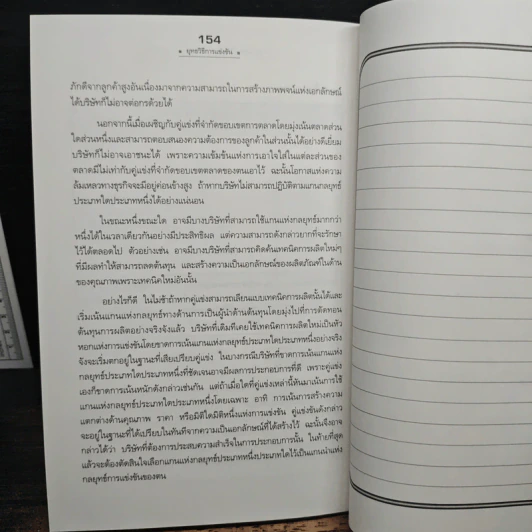 154
• ยุทธวิธีการแข่งขัน •
ภักดีจากลูกค้าสูงอันเนื่องมาจากความสามารถในการสร้างภาพพจน์แห่งเอกลักษณ์
ได้บริษัทก็ไม่อาจต่อกรด้วยได้
นอกจากนี้เมื่อเผชิญกับคู่แข่งที่จำกัดขอบเขตการตลาดโดยมุ่งเน้นตลาดส่วน
ใดส่วนหนึ่งและสามารถตอบสนองความต้องการของลูกค้าในส่วนนั้นได้อย่างดีเยี่ยม
บริษัทก็ไม่อาจเอาชนะได้ เพราะความเข้มข้นแห่งการเอาใจใส่ในแต่ละส่วนของ
ตลาดมีไม่เท่ากับคู่แข่งที่จำกัดขอบเขตตลาดของตนเอาไว้ ฉะนั้นโอกาสแห่งความ
ล้มเหลวทางธุรกิจจะมีอยู่ค่อนข้างสูง ถ้าหากบริษัทไม่สามารถปฏิบัติตามแกนกลยุทธ์
ประเภทใดประเภทหนึ่งได้อย่างแน่นอน
ในขณะหนึ่งขณะใด อาจมีบางบริษัทที่สามารถใช้แกนแห่งกลยุทธ์มากกว่า
หนึ่งได้ในเวลาเดียวกันอย่างมีประสิทธิผล แต่ความสามารถดังกล่าวยากที่จะรักษา
ไว้ได้ตลอดไป ตัวอย่างเช่น อาจมีบางบริษัทที่สามารถคิดค้นเทคนิคการผลิตใหม่ๆ
ที่มีผลทำให้สามารถลดต้นทุน และสร้างความเป็นเอกลักษณ์ของผลิตภัณฑ์ในด้าน
ของคุณภาพเพราะเทคนิคใหม่อันนั้น
อย่างไรก็ดี ในไม่ช้าถ้าหากคู่แข่งสามารถเลียนแบบเทคนิคการผลิตนั้นได้และ
เริ่มเน้นแกนแห่งกลยุทธ์ทางด้านการเป็นผู้นำด้านต้นทุนโดยมุ่งไปที่การตัดทอน
ต้นทุนการผลิตอย่างจริงจังแล้ว บริษัทที่เดิมทีเคยใช้เทคนิคการผลิตใหม่เป็นหัว
หอกแห่งการแข่งขันโดยขาดการเน้นแกนแห่งกลยุทธ์ประเภทใดประเภทหนึ่งอย่างจริง
จังจะเริ่มตกอยู่ในฐานะที่เสียเปรียบคู่แข่ง ในบางกรณีบริษัทที่ขาดการเน้นแกนแห่ง
กลยุทธ์ประเภทใดประเภทหนึ่งที่ชัดเจนอาจมีผลการประกอบการที่ดี เพราะคู่แข่ง
เองก็ขาดการเน้นหนักดังกล่าวเช่นกัน แต่ถ้าเมื่อใดที่คู่แข่งเหล่านี้หันมาเน้นการใช้
แกนแห่งกลยุทธ์ประเภทใดประเภทหนึ่งโดยเฉพาะ อาทิ การเน้นการสร้างความ
แตกต่างด้านคุณภาพ ราคา หรือมิติใดมิติหนึ่งแห่งการแข่งขัน คู่แข่งขันดังกล่าว
จะอยู่ในฐานะที่ได้เปรียบในทันทีจากความเป็นเอกลักษณ์ที่ได้สร้างไว้ ฉะนั้นจึงอาจ
กล่าวได้ว่า บริษัทที่ต้องการประสบความสำเร็จในการประกอบการนั้น ในท้ายที่สุด
แล้วจะต้องตัดสินใจเลือกแกนแห่งกลยุทธ์ประเภทหนึ่งประเภทใดไว้เป็นแกนนำแห่ง
กลยุทธ์การแข่งขันของตน